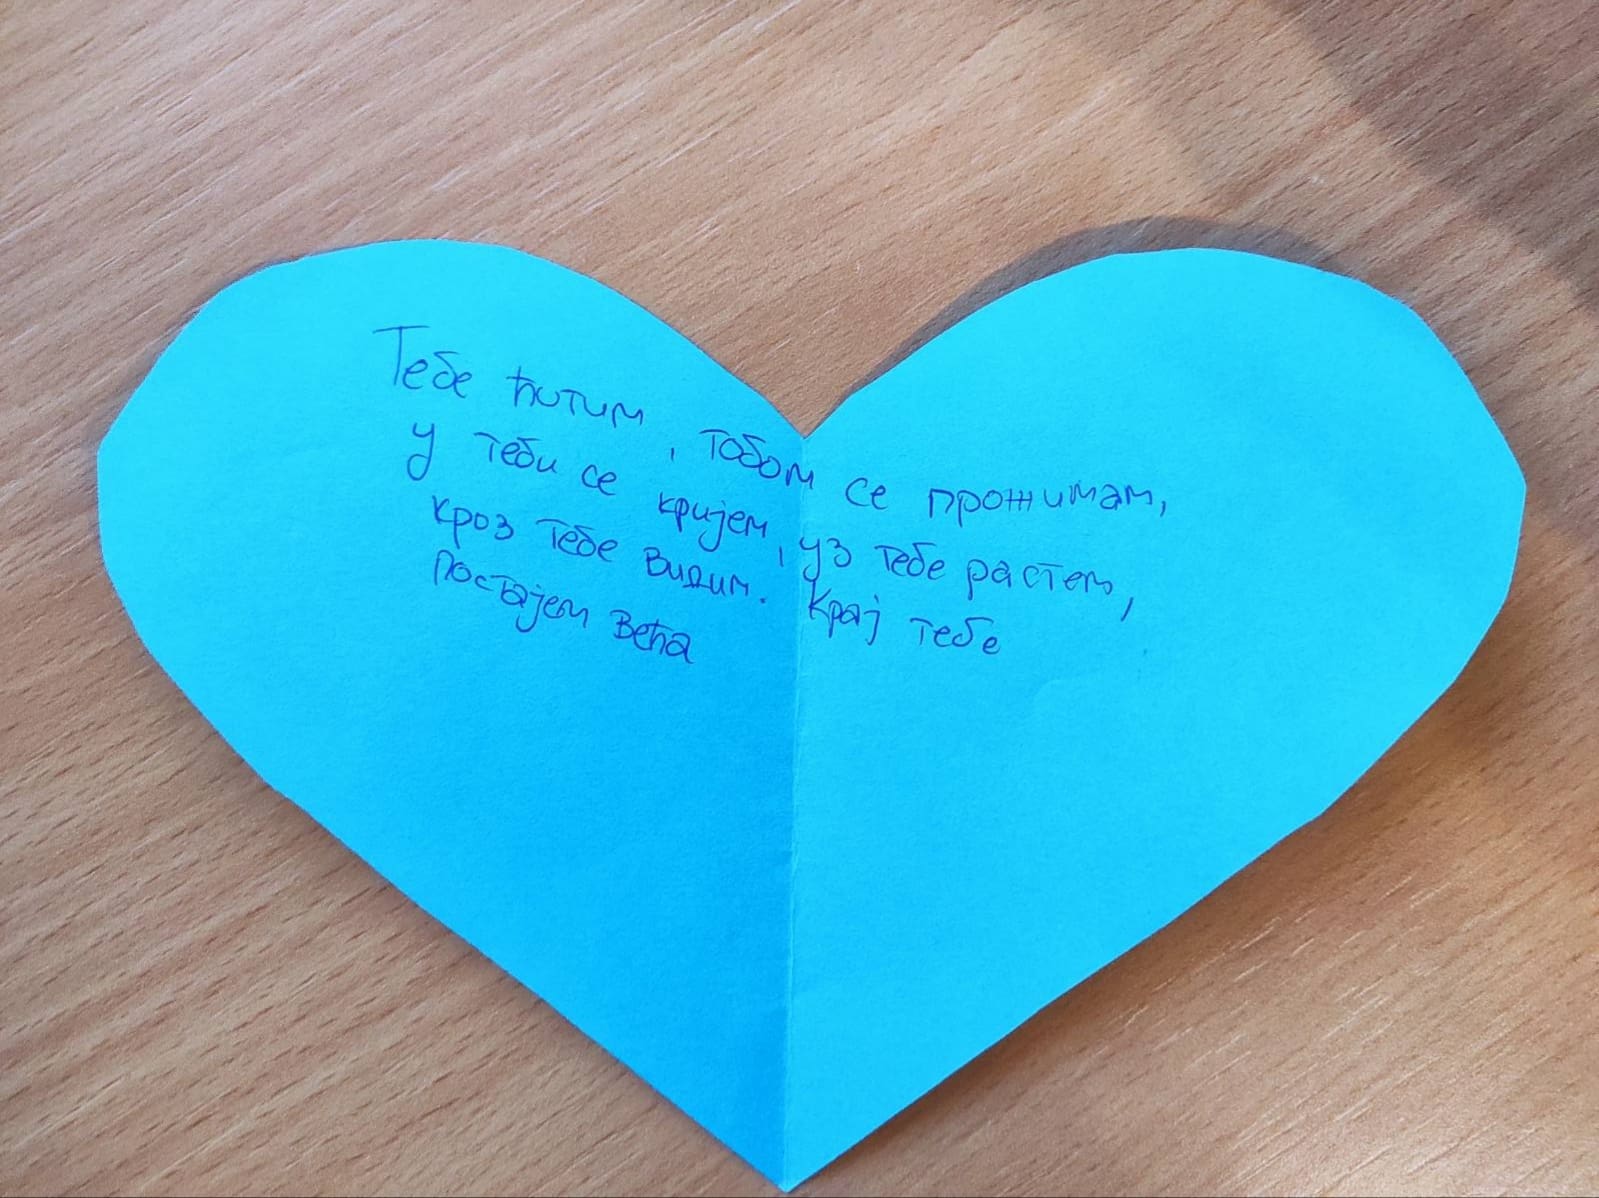 Тебе ћутим, тобом се прожимам,
у теби се кријем, уз тебе растем,
кроз тебе видим. Крај тебе
постајем већа